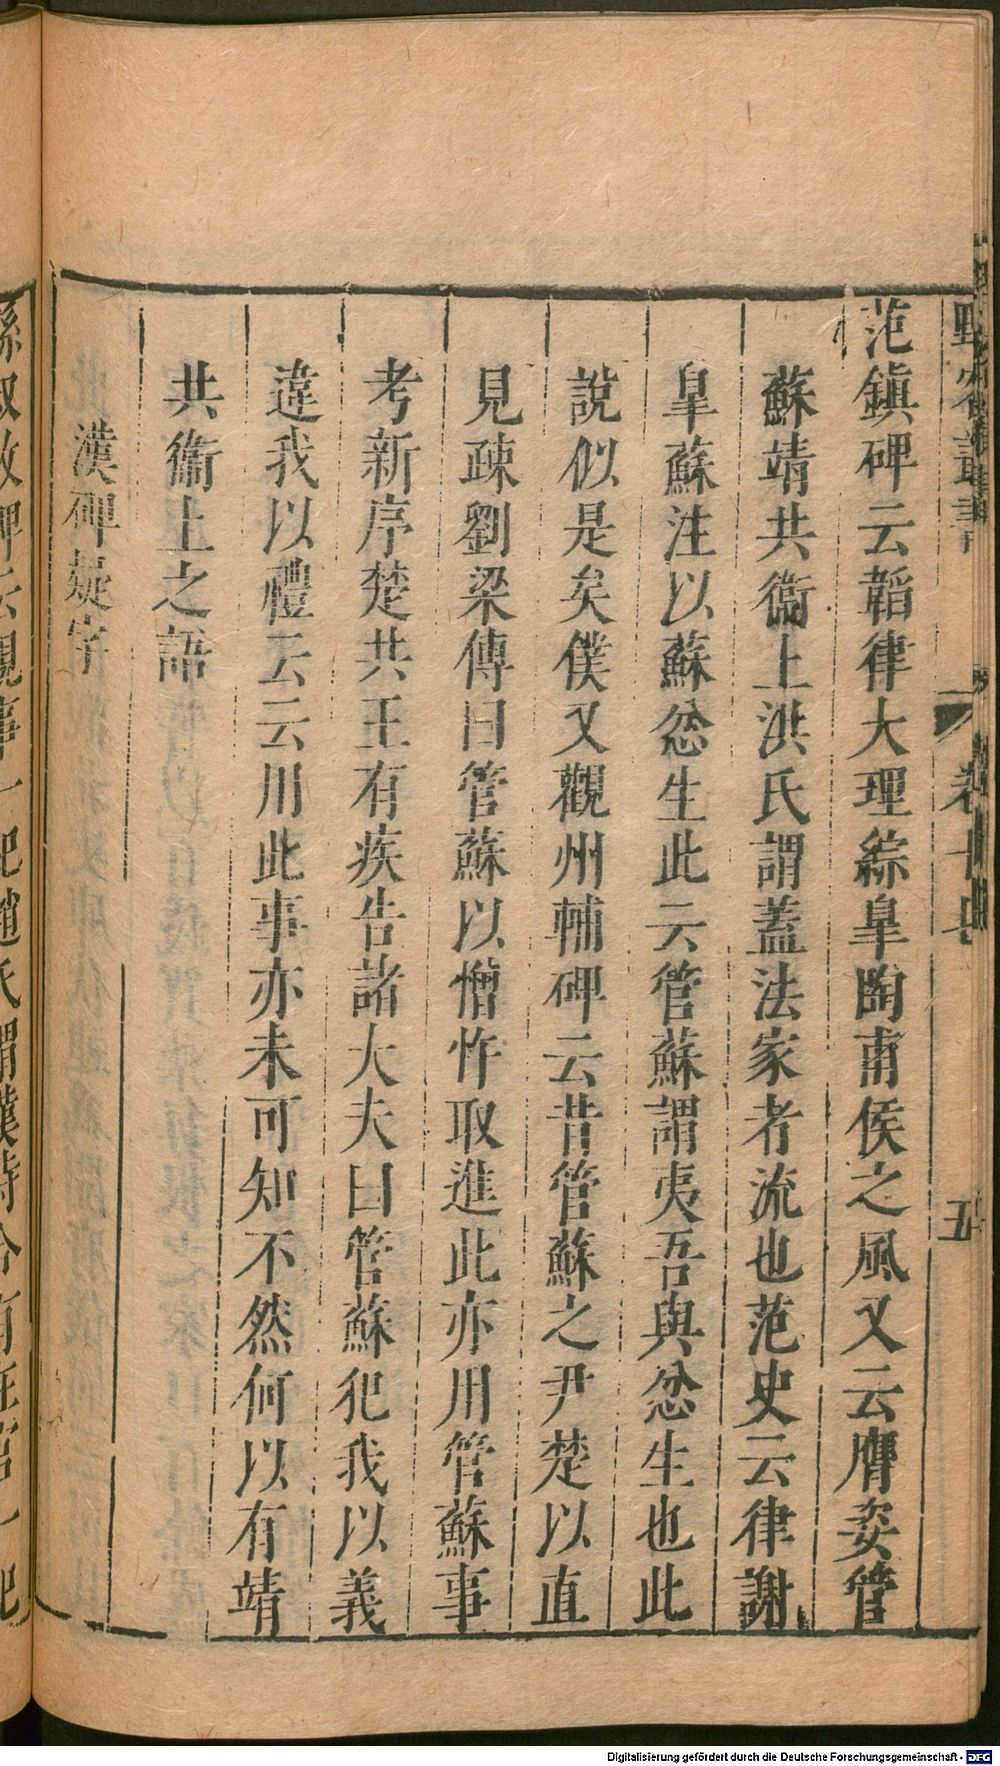 野客叢書 卷十七 五
范鎮碑云韜律大理綜臯陶甫侯之風又云膺姿管
蘇靖共衞上洪氏謂蓋法家者流也范史云律謝
臯蘇注以蘇忿生此云管蘇謂夷吾與忿生也此
說似是矣僕又觀州輔碑云昔管蘇之尹楚以直
見疎劉梁傳曰管蘇以憎忤取進此亦用管蘇事
考新序楚共王有疾告諸大夫曰管蘇犯我以義
違我以禮云云川此事亦未可知不然何以有靖
共衞上之語
漢碑疑字
孫叔敖碑云視事一紀趙氏謂漢時令有在官一紀
Digitalisierung gefördert durch die Deutsche Forschungsgemeinschaft - DFG